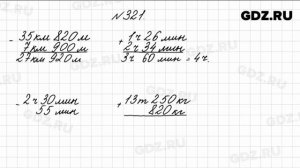 GDZ.RU
№321
- 35 км 820 м
7 км 900 м
27 км 920 м
+ 1 ч 26 мин
2 ч 34 мин
3 ч 60 мин = 4 ч
- 2 ч 30 мин
55 мин
+ 13 т 250 кг
820 кг
GDZ.RU